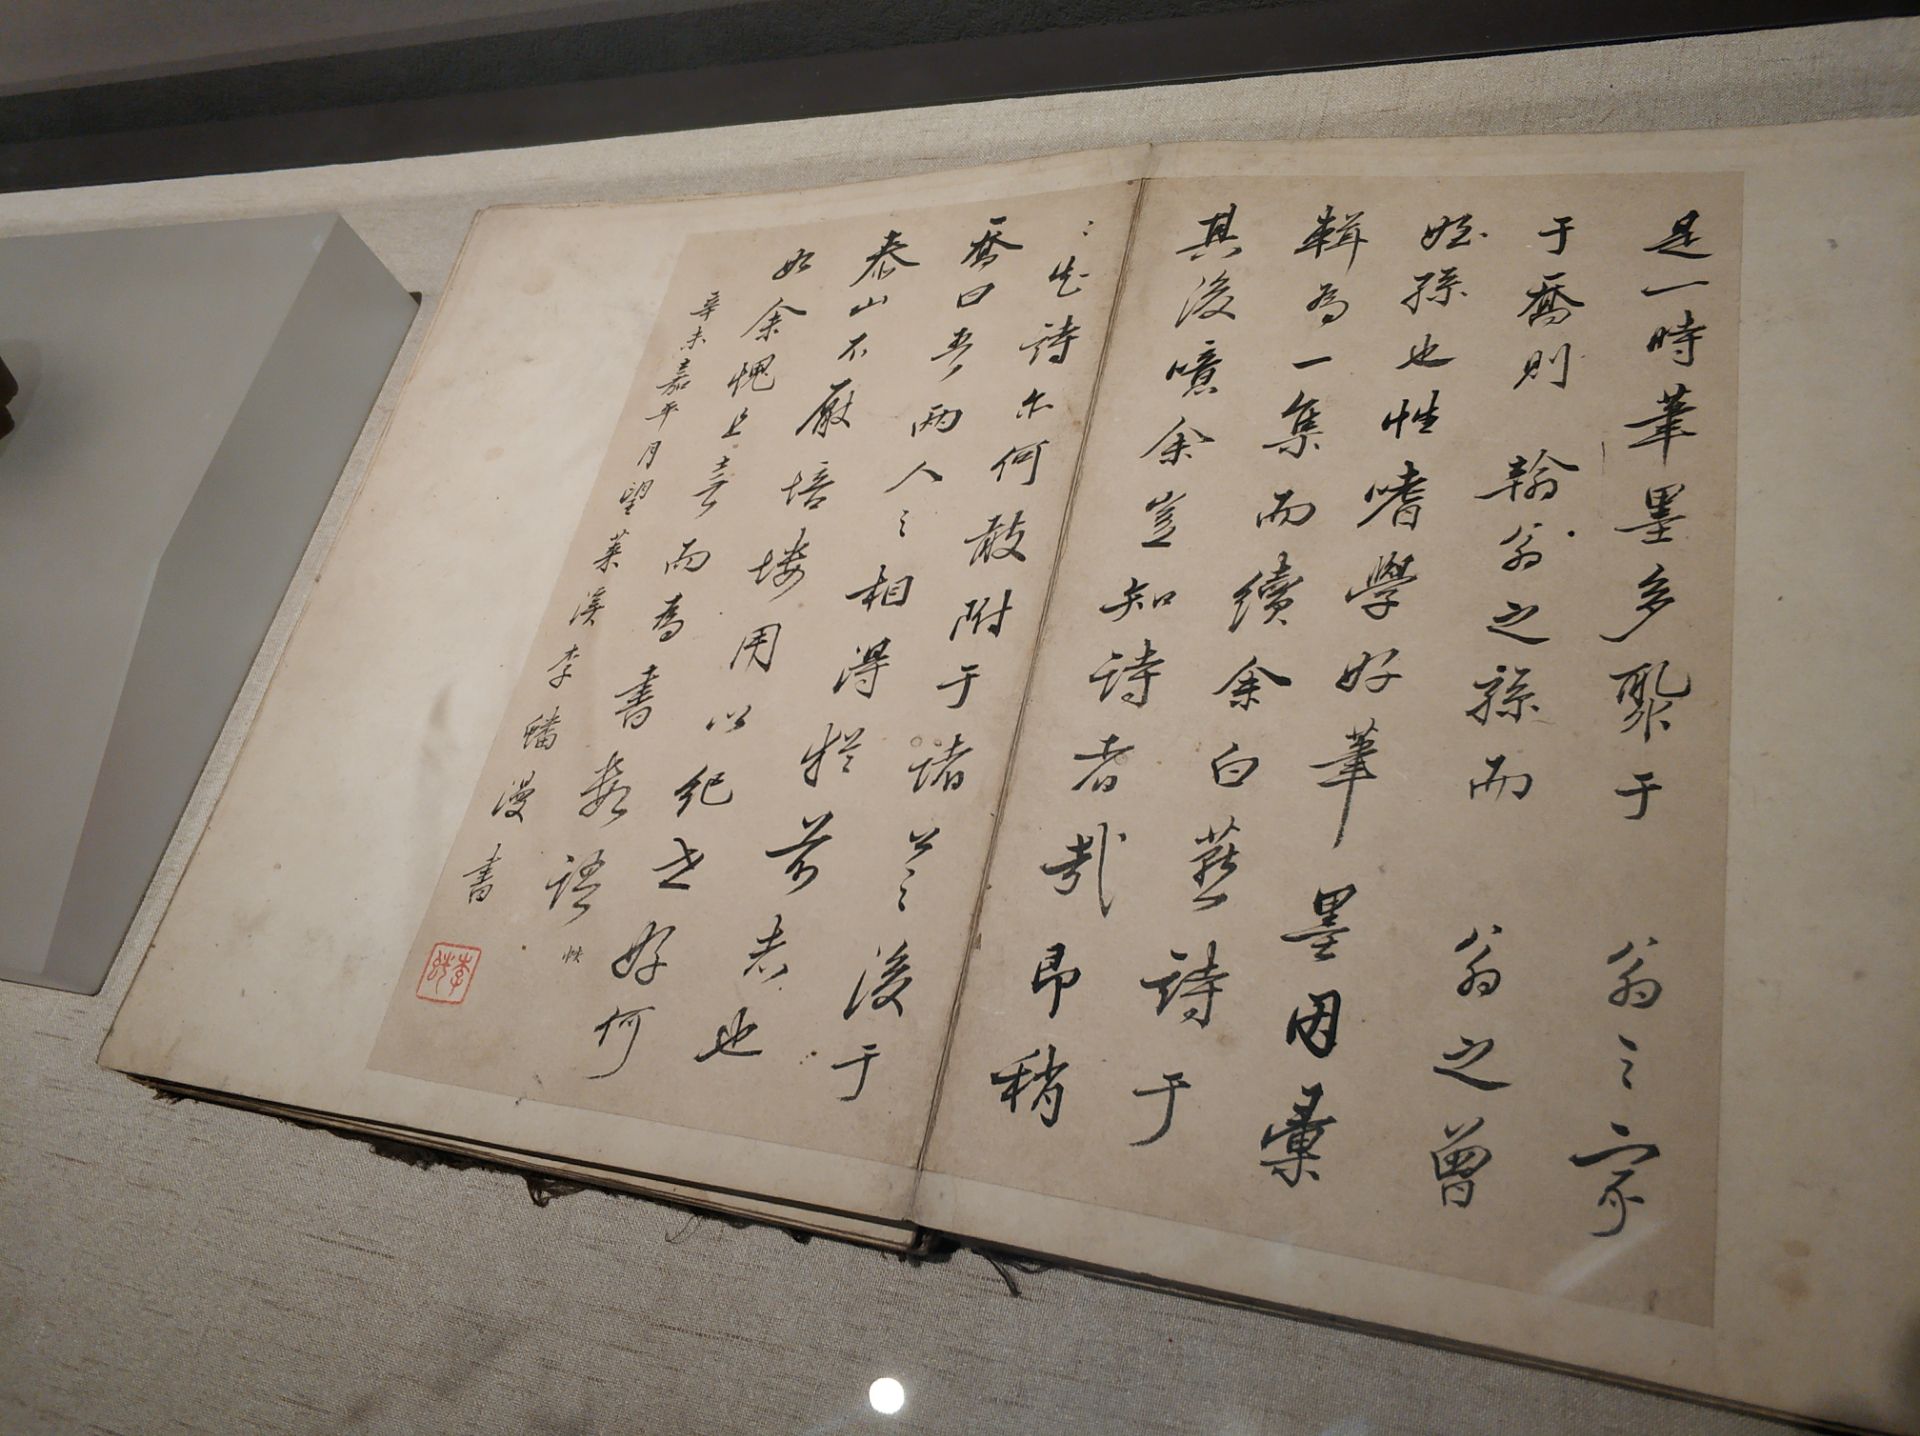 是一時筆墨多聚于 翁之家
于喬則 翰翁之孫而 翁之曾
姪孫也性嗜學好筆墨因彙
輯為一集而續余白燕詩于
其後噫余豈知詩者哉即稍
知詩亦何敢附于諸公之後于
喬曰吾兩人之相得於前者也
泰山不厭培塿用以紀之好何
如余愧且喜而為書數語
辛未嘉平月望萊溪李蟠漫書